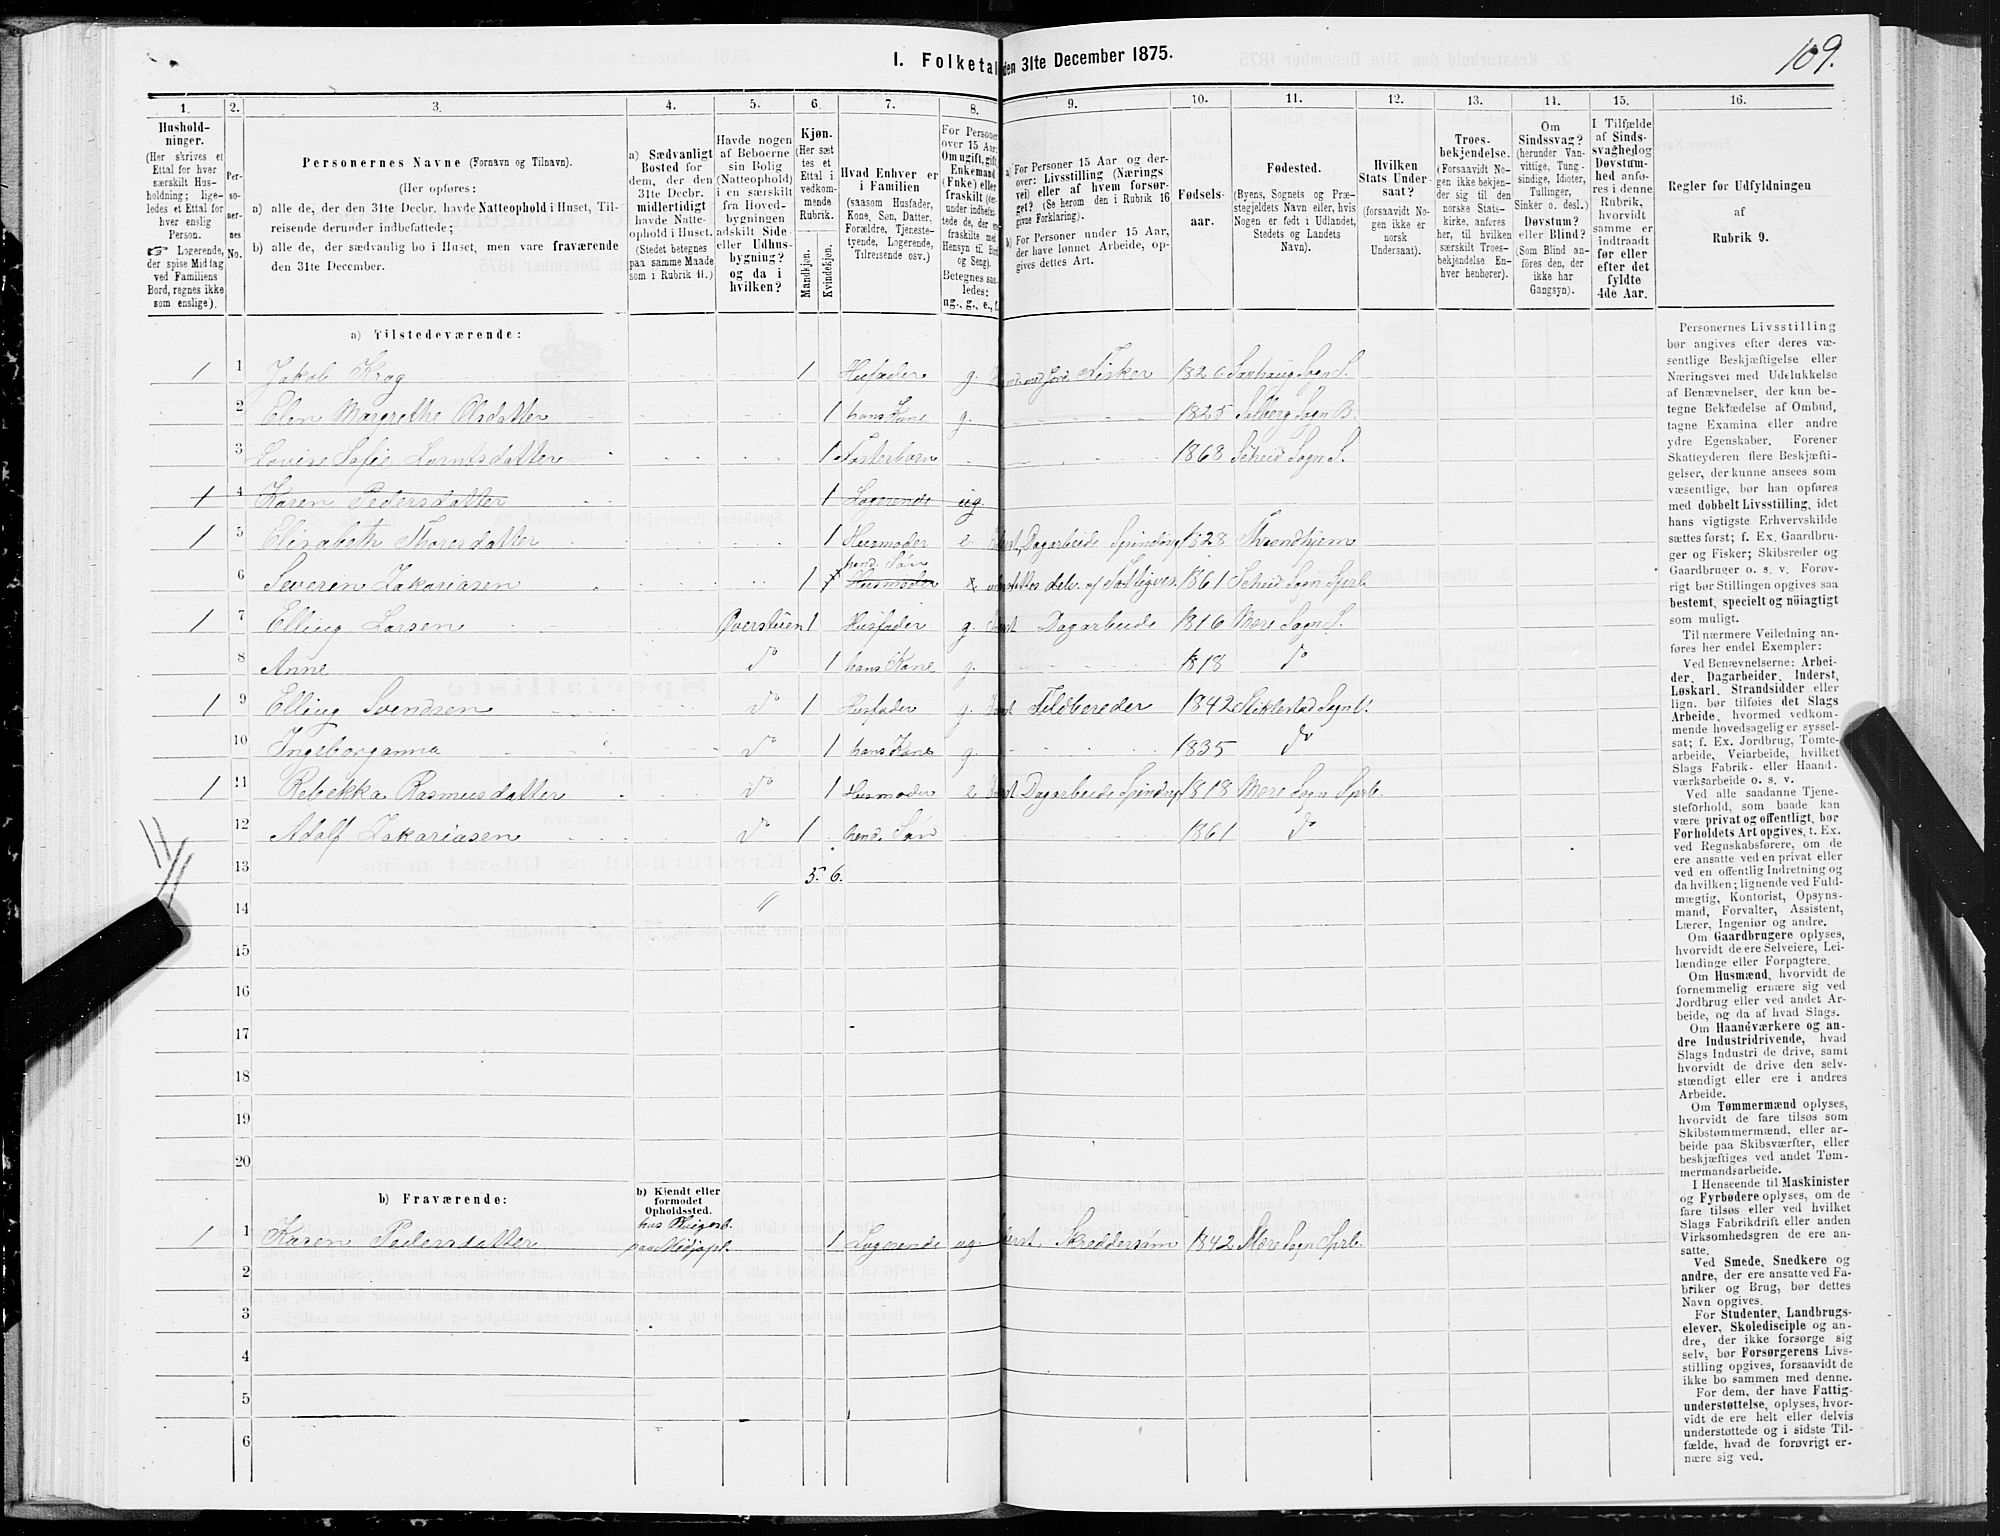 109.
I. Folketal den 31te December 1875.
1. 2. 3. 4. 5. 6. 7. 8. 9. 10. 11. 12. 13. 14. 15. 16.
Hushold-
ninger.
(Her skrives et
Ettal for hver
særskilt Hus-
holdning; lige-
ledes et Ettal for
hver enslig
Person.
☞ Logerende,
der spise Middag
ved Familiens
Bord, regnes ikke
som enslige).
Per-
so-
ner-
nes
No.
Personernes Navne (Fornavn og Tilnavn).
(Her opføres:
a) alle de, der den 31te Decbr. havde Natteophold i Huset, Til-
reisende derunder indbefattede;
b) alle de, der sædvanlig bo i Huset, men vare fraværende
den 31te December.
a) Sædvanligt
Bosted for
dem, der den
31te Decbr.
midlertidigt
havde Natte-
ophold i Huset.
(Stedet betegnes
paa samme Maade
som i Rubrik 11.)
Havde nogen
af Beboerne
sin Bolig
(Natteophold)
i en særskilt
fra Hoved-
bygningen
adskilt Side-
eller Udhus-
bygning?
og da i
hvilken?
Kjøn.
(Her sæt
tes et
Ettal i
vedkom-
mende
Rubrik.
Mandkjøn.
Kvindekjøn.
Hvad Enhver er
i Familien
(saasom Husfader,
Kone, Søn, Datter,
Forældre, Tjeneste-
tyende, Logerende,
Tilreisende osv.)
For Personer
over 15 Aar:
Om ugift, gift,
Enkemand
(Enke) eller
fraskilt
Betegnes saa-
ledes:
ug., g., e., f.
a) For Personer 15 Aar og der-
over: Livsstilling (Nærings
vei) eller af hvem forsør-
get? (Se herom den i Rubrik 16
givne Forklaring).
b) For Personer under 15 Aar,
der have lønnet Arbeide, op-
gives dettes Art.
Fødsels-
aar.
Fødested.
(Byens, Sognets og Præ-
stegjeldets Navn eller, hvis
Nogen er født i Udlandet,
Stedets og Landets
Navn).
Hvilken
Stats Under-
saat?
(forsaavidt No-
gen ikke er
norsk
Undersaat).
Troes-
bekjendelse.
(Forsaavidt No-
gen ikke bekjen-
der sig til den
norske Stats-
kirke, anføres
her, til hvilken
særskilt Troes-
bekjendelse En-
hver henhører).
Om
Sindssvag?
(herunder Van-
vittige, Tung-
sindige, Idioter,
Tullinger,
Sinker o. desl.)
Døvstum?
eller Blind?
(Som Blind an-
føres den, der
ikke har
Gangsyn).
I Tilfælde
af Sinds-
svaghed og
Døvstum-
hed anfø-
res i denne
Rubrik,
hvorvidt
samme er
indtraadt
før eller
efter det
fyldte
4de Aar.
Regler for Udfyldningen
af
Rubrik 9.
a) Tilstedeværende:
1 1 Jakob Krog 1 Husfader g. Fisker 1826 Saxhaug Sogn S.
2 Elen Margrethe Olsdatter 1 hans Kone g. 1825 Salberg Sogn B.
3 Lovise Sofie Larntsdatter 1 Fosterbarn 1863 Scheid Sogn S.
1 4 Karen Pedersdatter 1 Logerende ug.
1 5 Elisabeth Thoresdatter 1 Husmoder e Dagarbeide Spinding 1828 Throndhjem
hend. Søn
6 Severen Zakariasen 1 1 Husmoder understøttes delv. af Fattigves. 1861 Scheid Sogn Sprb.
1 7 Elling Larsen Øverstuen 1 Husfader g. Dagarbeide 1816 Mære Sogn S.
8 Anne do 1 hans Kone g. 1818 do
1 9 Elling Svendsen do 1 Husfader g. Feldbereder 1842 Stiklestad Sogn
10 Ingeborganna do 1 hans Kone g. 1835 do
1 11 Rebekka Rasmusdatter do 1 Husmoder e Dagarbeide Spinding 1818 Mære Sogn Sprb.
12 Adolf Zakariasen do 1 hend. Søn 1861 do
13 5. 6.
14 "
15
16
17
18
19
20
b) Fraværende:
b) Kjendt eller
formodet
Opholdssted.
1 1 Karen Pedersdatter 1 Logerende ug Skreddersøm 1842 Mære Sogn Sprb.
2
3
4
5
6
Personernes Livsstilling
bør angives efter deres væ-
sentlige Beskjæftigelse eller
Næringsvei med Udelukkelse
af Benævnelser, der kun be-
tegne Beklædelse af Ombud,
tagne Examina eller andre
ydre Egenskaber. Forener
Skatteyderen flere Beskjæfti-
gelser, der kunne ansees som
væsentlige, bør han opføres
med dobbelt Livsstilling, idet
hans vigtigste Erhvervskilde
sættes først; f. Ex. Gaardbru-
ger og Fisker; Skibsreder og
Gaardbruger o. s. v. Forøv-
rigt bør Stillingen opgives saa
bestemt, specielt og nöiagtigt
som muligt.
Til nærmere Veiledning an-
føres her endel Exempler:
Ved Benævnelserne: Arbei-
der, Dagarbeider, Inderst,
Løskarl, Strandsidder eller
lign. bør tilføies det Slags
Arbeide, hvormed vedkom-
mende hovedsagelig er syssel-
sat; f. Ex. Jordbrug, Tomte-
arbeide, Veiarbeide, hvilket
Slags Fabrik- eller Haand-
værksarbeide o. s. v.
Ved alle saadanne Tjene-
steforhold, som baade kan
være privat og offentligt, bør
Forholdets Art opgives, t. Ex.
ved Regnskabsførere, om de
ere ansatte ved en privat eller
ved en offentlig Indretning og
da hvilken; lignende ved Fuld-
mægtig, Kontorist, Opsyns-
mand, Forvalter, Assistent,
Lærer, Ingeniør og andre.
Om Gaardbrugere oplyses,
hvorvidt de ere Selveiere, Lei-
lændinge eller Forpagtere.
Om Husmænd, hvorvidt de
fornemmelig ernære sig ved
Jordbrug eller ved andet Ar-
beide, og da af hvad Slags.
Om Haandværkere og an-
dre Industridrivende, hvad
Slags Industri de drive, samt
hvorvidt de drive den selv-
stændigt eller ere i andres
Arbeide.
Om Tømmermænd oplyses,
hvorvidt de fare tilsøs som
Skibstømmermænd, eller ar-
beide paa Skibsværfter, eller
beskjæftiges ved andet Tøm-
mermandsarbeide.
I Henseende til Maskinister
og Fyrbødere oplyses, om de
fare tilsøs eller ved hvilket
Slags Fabrikdrift eller anden
Virksomhedsgren de ere an-
satte.
Ved Smede, Snedkere og
andre, der ere ansatte ved Fa-
briker og Brug, bør dettes
Navn opgives.
For Studenter, Landbrugs-
elever, Skoledisciple og an-
dre, der ikke forsørge sig
selv, bør Forsørgerens Livs-
stilling opgives, forsaavidt de
ikke bo sammen med denne.
For dem, der have Fattig-
understøttelse, oplyses, hvor-
vidt de ere helt eller delvis
understøttede og i sidste Til-
fælde, hvad de forøvrigt er-
nære sig ved.